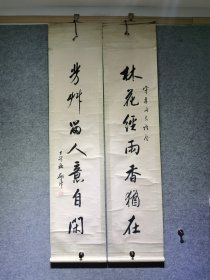 林花經雨香猶在
芳艸留人意自閑